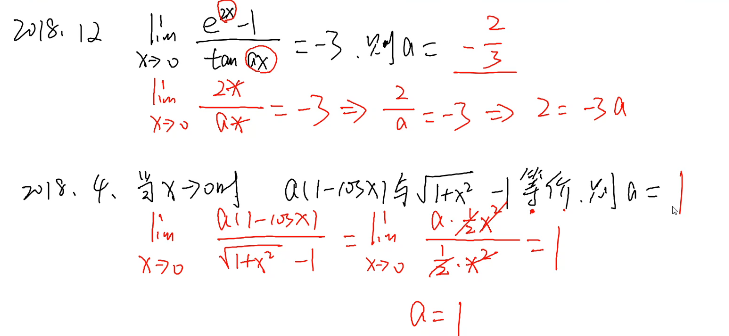 2018.12 lim x→0 (e^(2x) -1)/(tan ax) = -3 .则a = -2/3
lim x→0 2x/ax = -3 ⇒ 2/a = -3 ⇒ 2 = -3a
2018.4. 当x→0时 a(1-cosx)与√(1+x²) -1等价.则a = 1
lim x→0 a(1-cosx)/(√(1+x²) -1) = lim x→0 (a·½x²)/(½·x²) = 1
a = 1